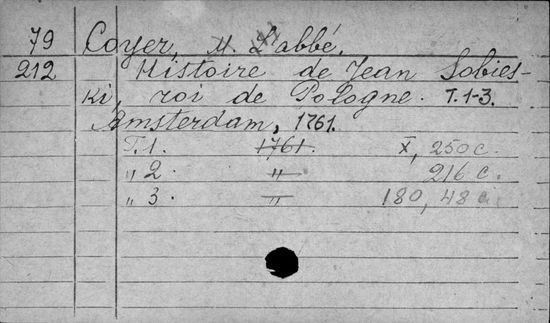 79 Coyer, M. L'abbé.
212 Histoire de Jean Sobies-
ki, roi de Pologne. T. 1-3.
Amsterdam, 1761.
T. 1. 1761. X, 250 c.
„ 2. „ 216 c.
„ 3. „ 180, 48 c.